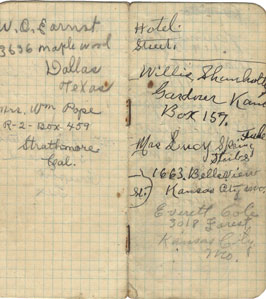 W. O. Earnst
3636 maplewood
Dallas
Texas
Mrs. Wm Pope
R-2-Box-459
Strathmore
Cal.
Hotel
Street.
Willie
Gardner Kans
Box 157.
Mrs Lucy
1663. Belleview
St. Kansas City, mo.
Everett Cole
3018 Forest
Kansas City
Mo.